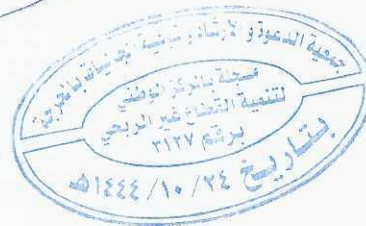 جمعية الدعوة والإرشاد وتوعية الجاليات بالخرج
مسجلة بالمركز الوطني
لتنمية القطاع غير الربحي
برقم ٣١٢٧
بتاريخ ١٤٤٤/١٠/٢٤هـ